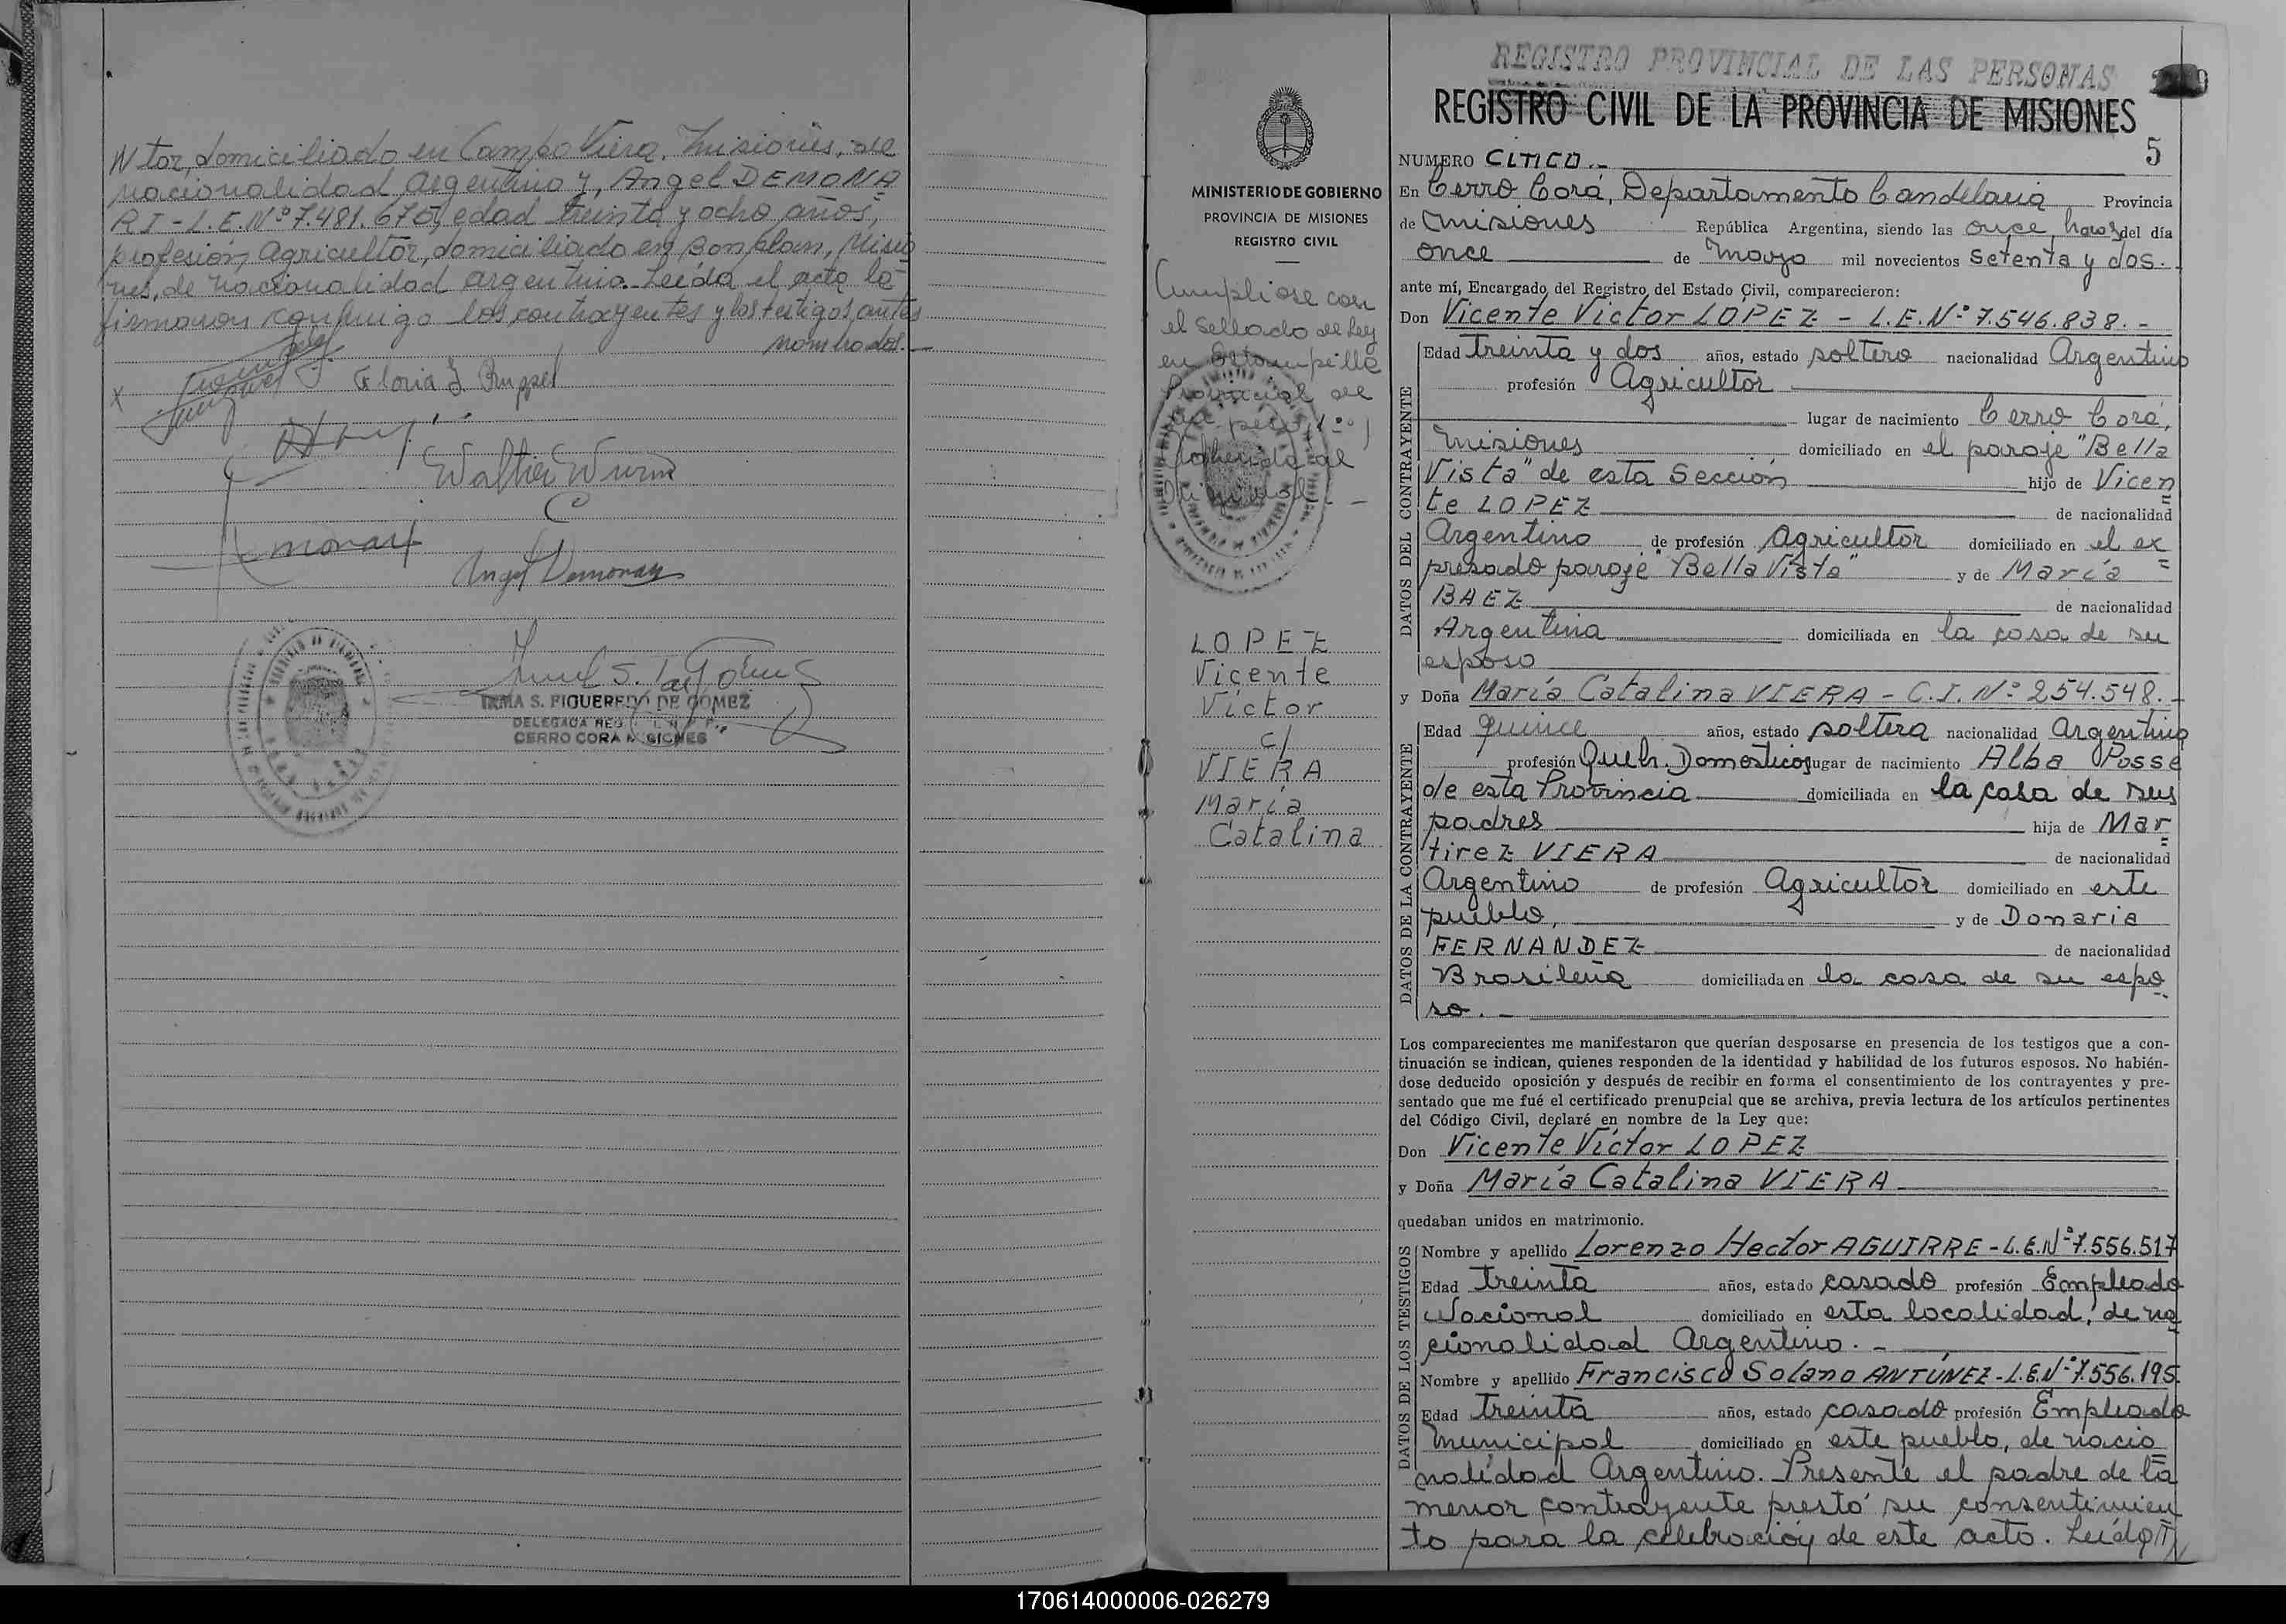 Ntor, domiciliado en Campo Viera, Misiones, de
nacionalidad Argentino y, Angel DEMONA
RI - L.E. Nº 7.481.670, edad treinta y ocho años,
profesión Agricultor, domiciliado en Bonplan, Misio
nes, de nacionalidad argentina. Leída el acta la
firmaron conmigo los contrayentes y los testigos antes
nombrados.—
x
Gloria J.
Walter Wurm
Angel Demonari
IRMA S. FIGUEREDO DE GOMEZ
DELEGADA REG.
CERRO CORA MISIONES
MINISTERIO DE GOBIERNO
PROVINCIA DE MISIONES
REGISTRO CIVIL
Cumpliose con
el Sellado de Ley
en Estampilla
Provincial de
LOPEZ
Vicente
Víctor
c/
VIERA
María
Catalina
REGISTRO PROVINCIAL DE LAS PERSONAS
REGISTRO CIVIL DE LA PROVINCIA DE MISIONES
5
NUMERO CINCO.-
En Cerro Corá, Departamento Candelaria Provincia
de Misiones República Argentina, siendo las once horas del día
once de Mayo mil novecientos setenta y dos.-
ante mí, Encargado del Registro del Estado Civil, comparecieron:
Don Vicente Víctor LOPEZ - L.E. Nº 7.546.838.-
DATOS DEL CONTRAYENTE
Edad treinta y dos años, estado soltero nacionalidad Argentino
profesión Agricultor
lugar de nacimiento Cerro Corá,
Misiones domiciliado en el paraje "Bella
Vista" de esta Sección hijo de Vicen
te LOPEZ de nacionalidad
Argentino de profesión Agricultor domiciliado en el ex
presado paraje "Bella Vista" y de María
BAEZ de nacionalidad
Argentina domiciliada en la casa de su
esposo
y Doña María Catalina VIERA - C.I. Nº 254.548.-
DATOS DE LA CONTRAYENTE
Edad quince años, estado soltera nacionalidad Argentina
profesión Queh. Domesticos lugar de nacimiento Alba Posse
de esta Provincia domiciliada en la casa de sus
padres hija de Mar
tirez VIERA de nacionalidad
Argentino de profesión Agricultor domiciliado en este
pueblo, y de Donaria
FERNANDEZ de nacionalidad
Brasileña domiciliada en la casa de su espo
so.-
Los comparecientes me manifestaron que querían desposarse en presencia de los testigos que a con-
tinuación se indican, quienes responden de la identidad y habilidad de los futuros esposos. No habién-
dose deducido oposición y después de recibir en forma el consentimiento de los contrayentes y pre-
sentado que me fué el certificado prenupcial que se archiva, previa lectura de los artículos pertinentes
del Código Civil, declaré en nombre de la Ley que:
Don Vicente Víctor LOPEZ
y Doña María Catalina VIERA
quedaban unidos en matrimonio.
DATOS DE LOS TESTIGOS
Nombre y apellido Lorenzo Hector AGUIRRE - L.E. Nº 7.556.517
Edad treinta años, estado casado profesión Empleado
Nacional domiciliado en esta localidad, de na
cionalidad Argentino.-
Nombre y apellido Francisco Solano ANTÚNEZ - L.E. Nº 7.556.195.
Edad treinta años, estado casado profesión Empleado
Municipal domiciliado en este pueblo, de nacio
nalidad Argentino. Presente el padre de la
menor contrayente prestó su consentimien
to para la celebración de este acto. Leída
170614000006-026279